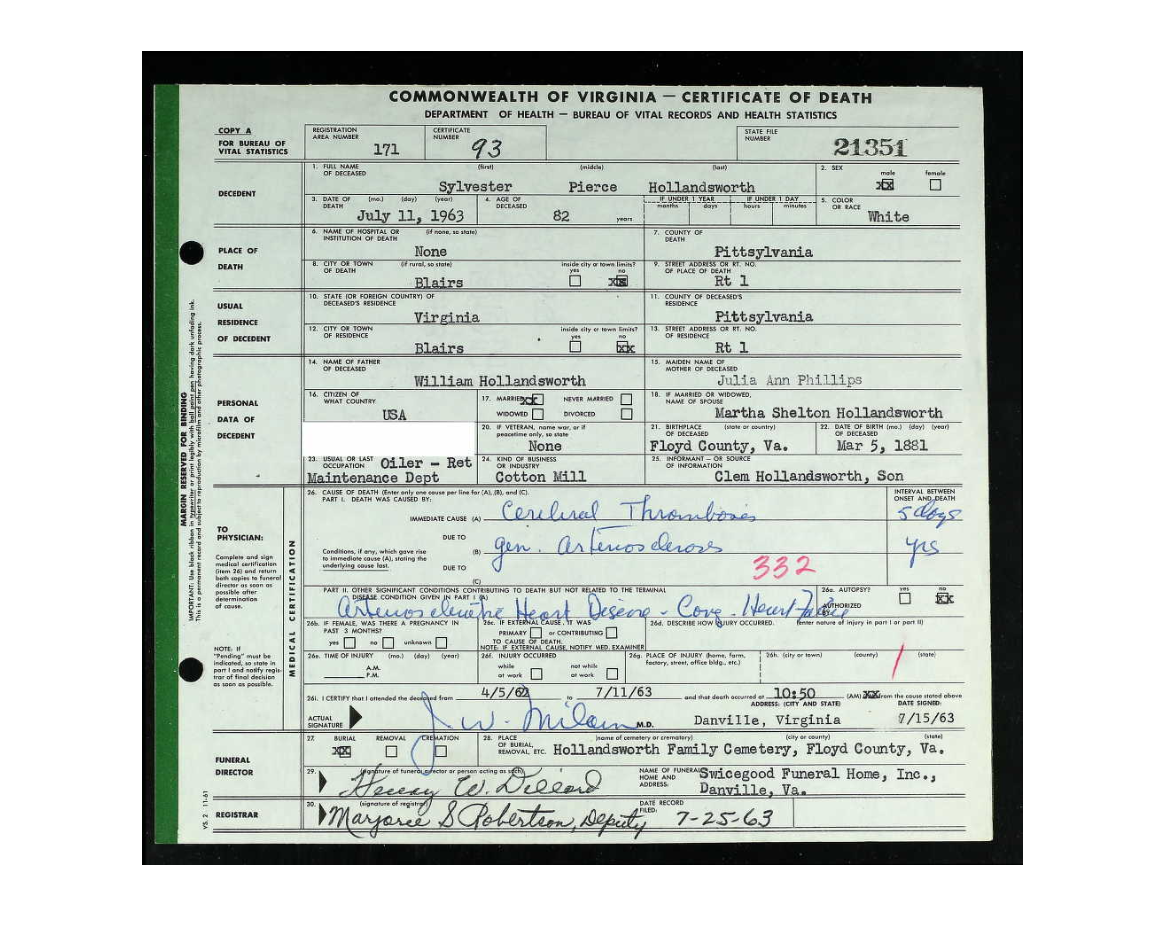 COMMONWEALTH OF VIRGINIA — CERTIFICATE OF DEATH
DEPARTMENT OF HEALTH — BUREAU OF VITAL RECORDS AND HEALTH STATISTICS
COPY A
FOR BUREAU OF VITAL STATISTICS
REGISTRATION AREA NUMBER 171
CERTIFICATE NUMBER 93
STATE FILE NUMBER 21351
DECEDENT
1. FULL NAME OF DECEASED (first) (middle) (last)
Sylvester Pierce Hollandsworth
2. SEX male XX female
3. DATE OF DEATH (mo.) (day) (year)
July 11, 1963
4. AGE OF DECEASED 82 years
IF UNDER 1 YEAR months days
IF UNDER 1 DAY hours minutes
5. COLOR OR RACE White
PLACE OF DEATH
6. NAME OF HOSPITAL OR INSTITUTION OF DEATH (if none, so state)
None
7. COUNTY OF DEATH
Pittsylvania
8. CITY OR TOWN OF DEATH (if rural, so state)
Blairs
inside city or town limits? yes no XX
9. STREET ADDRESS OR RT. NO. OF PLACE OF DEATH
Rt 1
USUAL RESIDENCE OF DECEDENT
10. STATE (OR FOREIGN COUNTRY) OF DECEASED'S RESIDENCE
Virginia
11. COUNTY OF DECEASED'S RESIDENCE
Pittsylvania
12. CITY OR TOWN OF RESIDENCE
Blairs
inside city or town limits? yes no XX
13. STREET ADDRESS OR RT. NO. OF RESIDENCE
Rt 1
PERSONAL DATA OF DECEDENT
14. NAME OF FATHER OF DECEASED
William Hollandsworth
15. MAIDEN NAME OF MOTHER OF DECEASED
Julia Ann Phillips
16. CITIZEN OF WHAT COUNTRY
USA
17. MARRIED XX NEVER MARRIED
WIDOWED DIVORCED
18. IF MARRIED OR WIDOWED, NAME OF SPOUSE
Martha Shelton Hollandsworth
20. IF VETERAN, name war, or if peacetime only, so state
None
21. BIRTHPLACE OF DECEASED (state or country)
Floyd County, Va.
22. DATE OF BIRTH (mo.) (day) (year) OF DECEASED
Mar 5, 1881
23. USUAL OR LAST OCCUPATION Oiler - Ret
Maintenance Dept
24. KIND OF BUSINESS OR INDUSTRY
Cotton Mill
25. INFORMANT — OR SOURCE OF INFORMATION
Clem Hollandsworth, Son
MARGIN RESERVED FOR BINDING
IMPORTANT: Use black ribbon in typewriter or print legibly with ball point pen having dark unfading ink.
This is a permanent record and subject to reproduction by microfilm and other photographic process.
TO PHYSICIAN:
Complete and sign medical certification (item 26) and return both copies to funeral director as soon as possible after determination of cause.
NOTE: If "Pending" must be indicated, so state in part I and notify registrar of final decision as soon as possible.
MEDICAL CERTIFICATION
26. CAUSE OF DEATH (Enter only one cause per line for (A), (B), and (C).
PART I. DEATH WAS CAUSED BY:
INTERVAL BETWEEN ONSET AND DEATH
IMMEDIATE CAUSE (A) Cerebral Thrombosis 5 days
DUE TO
Conditions, if any, which gave rise to immediate cause (A), stating the underlying cause last.
(B) gen. Arteriosclerosis yrs
DUE TO
(C)
332
PART II. OTHER SIGNIFICANT CONDITIONS CONTRIBUTING TO DEATH BUT NOT RELATED TO THE TERMINAL DISEASE CONDITION GIVEN IN PART I (A)
Arteriosclerotic Heart Disease - Cong. Heart Failure
26a. AUTOPSY? yes no XX
AUTHORIZED
26b. IF FEMALE, WAS THERE A PREGNANCY IN PAST 3 MONTHS?
yes no unknown
26c. IF EXTERNAL CAUSE, IT WAS
PRIMARY or CONTRIBUTING
TO CAUSE OF DEATH.
NOTE: IF EXTERNAL CAUSE, NOTIFY MED. EXAMINER
26d. DESCRIBE HOW INJURY OCCURRED. (enter nature of injury in part I or part II)
26e. TIME OF INJURY (mo.) (day) (year)
A.M.
P.M.
26f. INJURY OCCURRED
while at work not while at work
26g. PLACE OF INJURY (home, farm, factory, street, office bldg., etc.)
26h. (city or town) (county) (state)
26i. I CERTIFY that I attended the deceased from 4/5/62 to 7/11/63 and that death occurred at 10:50 (AM) XX from the cause stated above
ACTUAL SIGNATURE J W. Milam M.D.
ADDRESS: (CITY AND STATE)
Danville, Virginia
DATE SIGNED:
7/15/63
FUNERAL DIRECTOR
27. BURIAL XX REMOVAL CREMATION
28. PLACE OF BURIAL, REMOVAL, ETC. (name of cemetery or crematory) (city or county) (state)
Hollandsworth Family Cemetery, Floyd County, Va.
29. (signature of funeral director or person acting as such)
Henry W. Dillard
NAME OF FUNERAL HOME AND ADDRESS:
Swicegood Funeral Home, Inc.,
Danville, Va.
REGISTRAR
30. (signature of registrar)
Marjorie S Robertson, Deputy
DATE RECORD FILED:
7-25-63
VS. 2 11-61